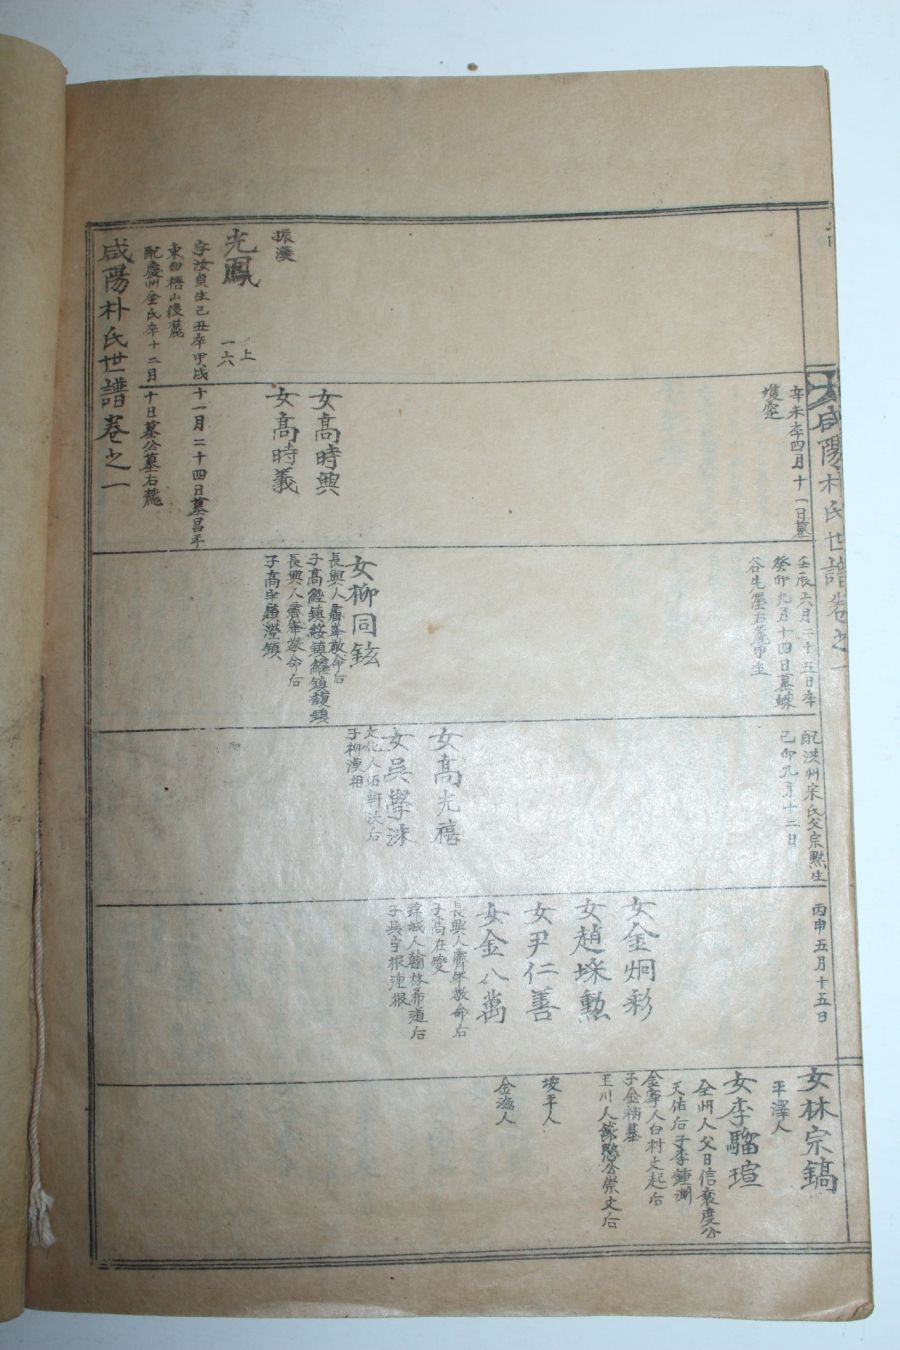 咸陽朴氏世譜卷之一
辛未卒四月十一日墓
雙窆
振漢
光鳳
上
一六
字汝貞生己丑卒甲戌
十一月二十四日墓昌平
東面梧山後麓
配慶州金氏卒十二月
十日墓公墓右麓
女高時興
女高時義
壬辰六月二十五日卒
癸卯九月十四日墓
谷先塋右麓
女柳同鉉
長興人霽峯敬命后
長興人霽峯敬命后
配洪州宋氏父宗默生
己卯九月十二日
女高光禧
女吳學洙
文化人
子柳漢相
丙申五月十五日
女金炯彩
女趙埰勳
女尹仁善
女金八萬
長興人霽峯敬命后
子高在燮
人翰林希道后
女林宗鎬
平澤人
女李騮瑄
全州人父日信襄度公
天佑后子李鍾淵
金寧人白村文起后
坡平人
金海人
咸陽朴氏世譜卷之一